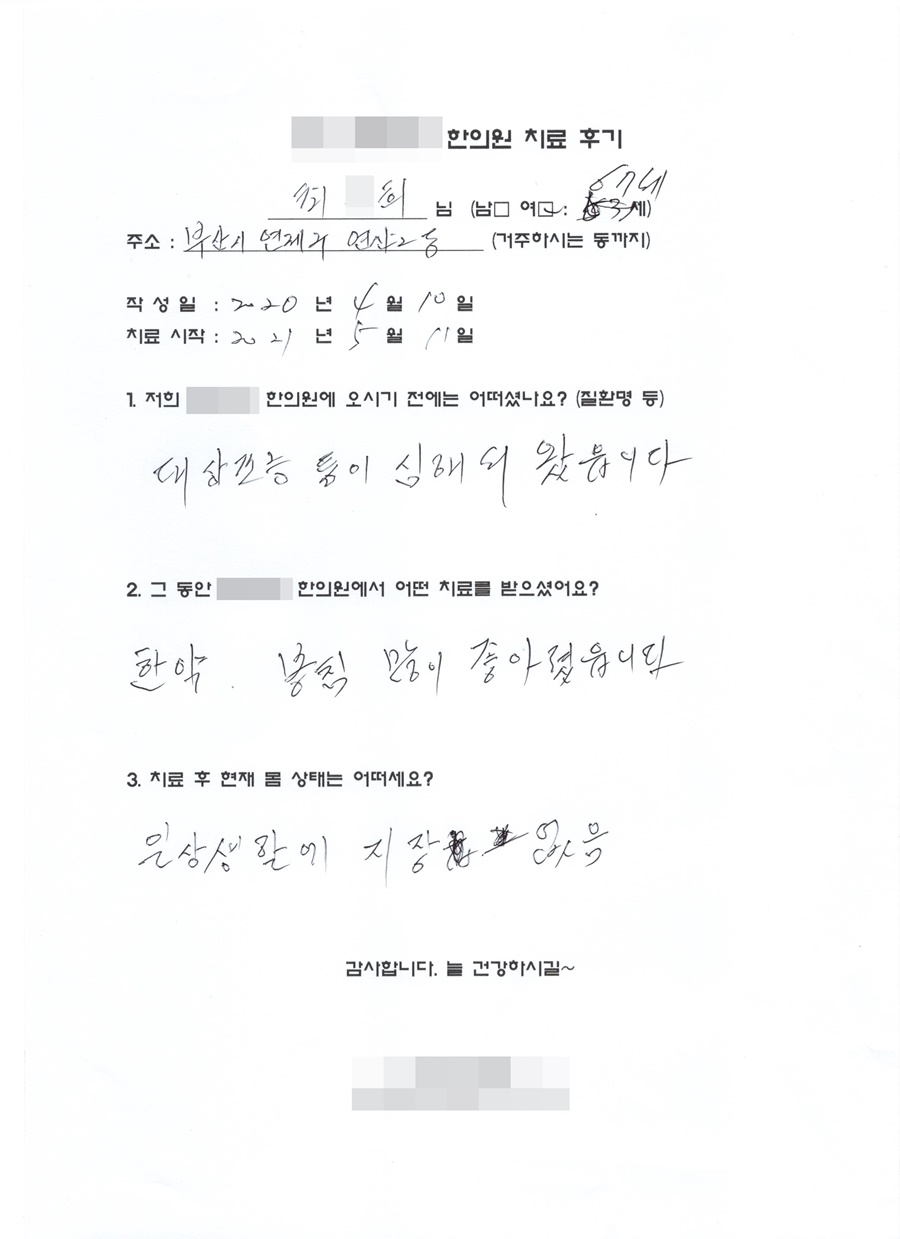 한의원 치료 후기
최 희 님 (남□ 여☑: 67세 세)
주소 : 부산시 연제구 연산2동 (거주하시는 동까지)
작성일 : 2020 년 4 월 10 일
치료 시작 : 2021 년 5 월 11 일
1. 저희 한의원에 오시기 전에는 어떠셨나요? (질환명 등)
대상포진 통이 심해 왔읍니다
2. 그 동안 한의원에서 어떤 치료를 받으셨어요?
한약. 봉침 많이 좋아졌읍니다
3. 치료 후 현재 몸 상태는 어떠세요?
일상생활에 지장 없음
감사합니다. 늘 건강하시길~